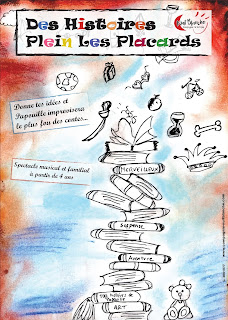 Des Histoires
Plein Les Placards
Donne tes idées et
Papouille improvisera
le plus fou des contes...
Spectacle musical et familial
à partir de 4 ans
MERVEILLEUX
Suspense
Aventure
ART